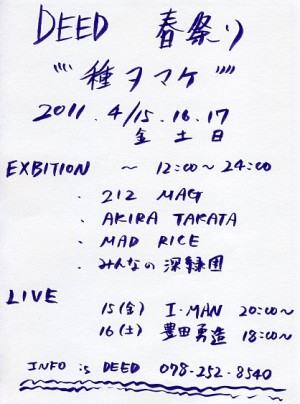 DEED 春祭り
"" 種ヲマケ ""
2011. 4/15.16.17
金 土 日
EXBITION ～ 12:00～24:00
. 212 MAG
. AKIRA TAKATA
. MAD RICE
. みんなの深緑団
LIVE
15(金) I-MAN 20:00～
16(土) 豊田勇造 18:00～
INFO is DEED 078-252-8540